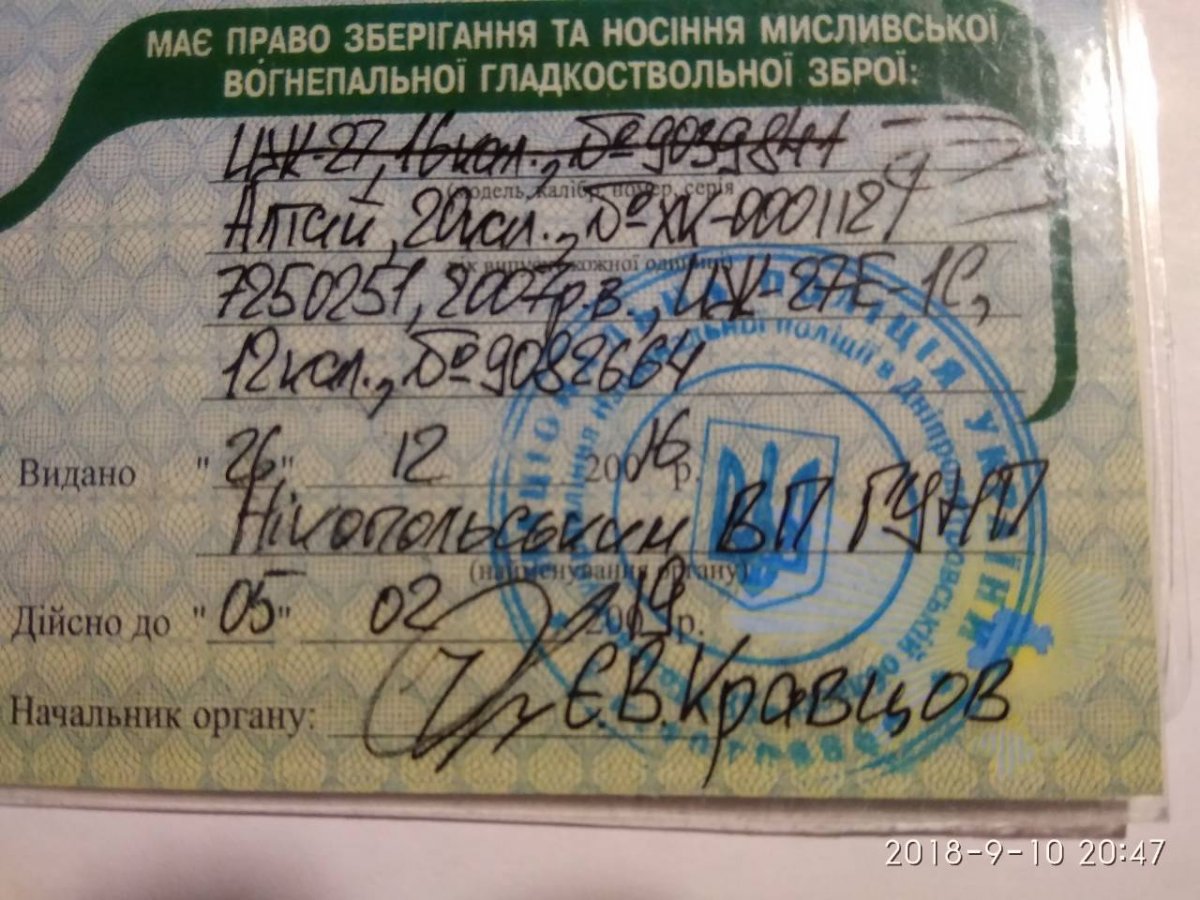 МАЄ ПРАВО ЗБЕРІГАННЯ ТА НОСІННЯ МИСЛИВСЬКОЇ
ВОГНЕПАЛЬНОЇ ГЛАДКОСТВОЛЬНОЇ ЗБРОЇ:
ИЖ-27, 16 кал., №9039841
модель, калібр, номер, серія
Алтай, 20кал., №ХК-0001127
7250251, 2007р.в., ИЖ-27Е-1С,
12кал., №9082664
Видано "26" 12 200 16 р.
Нікопольським ВП ГУНП
(найменування органу)
Дійсно до "05" 02 200 19 р.
Начальник органу: Є.В.Кравцов
НАЦІОНАЛЬНА ПОЛІЦІЯ УКРАЇНИ
2018-9-10 20:47